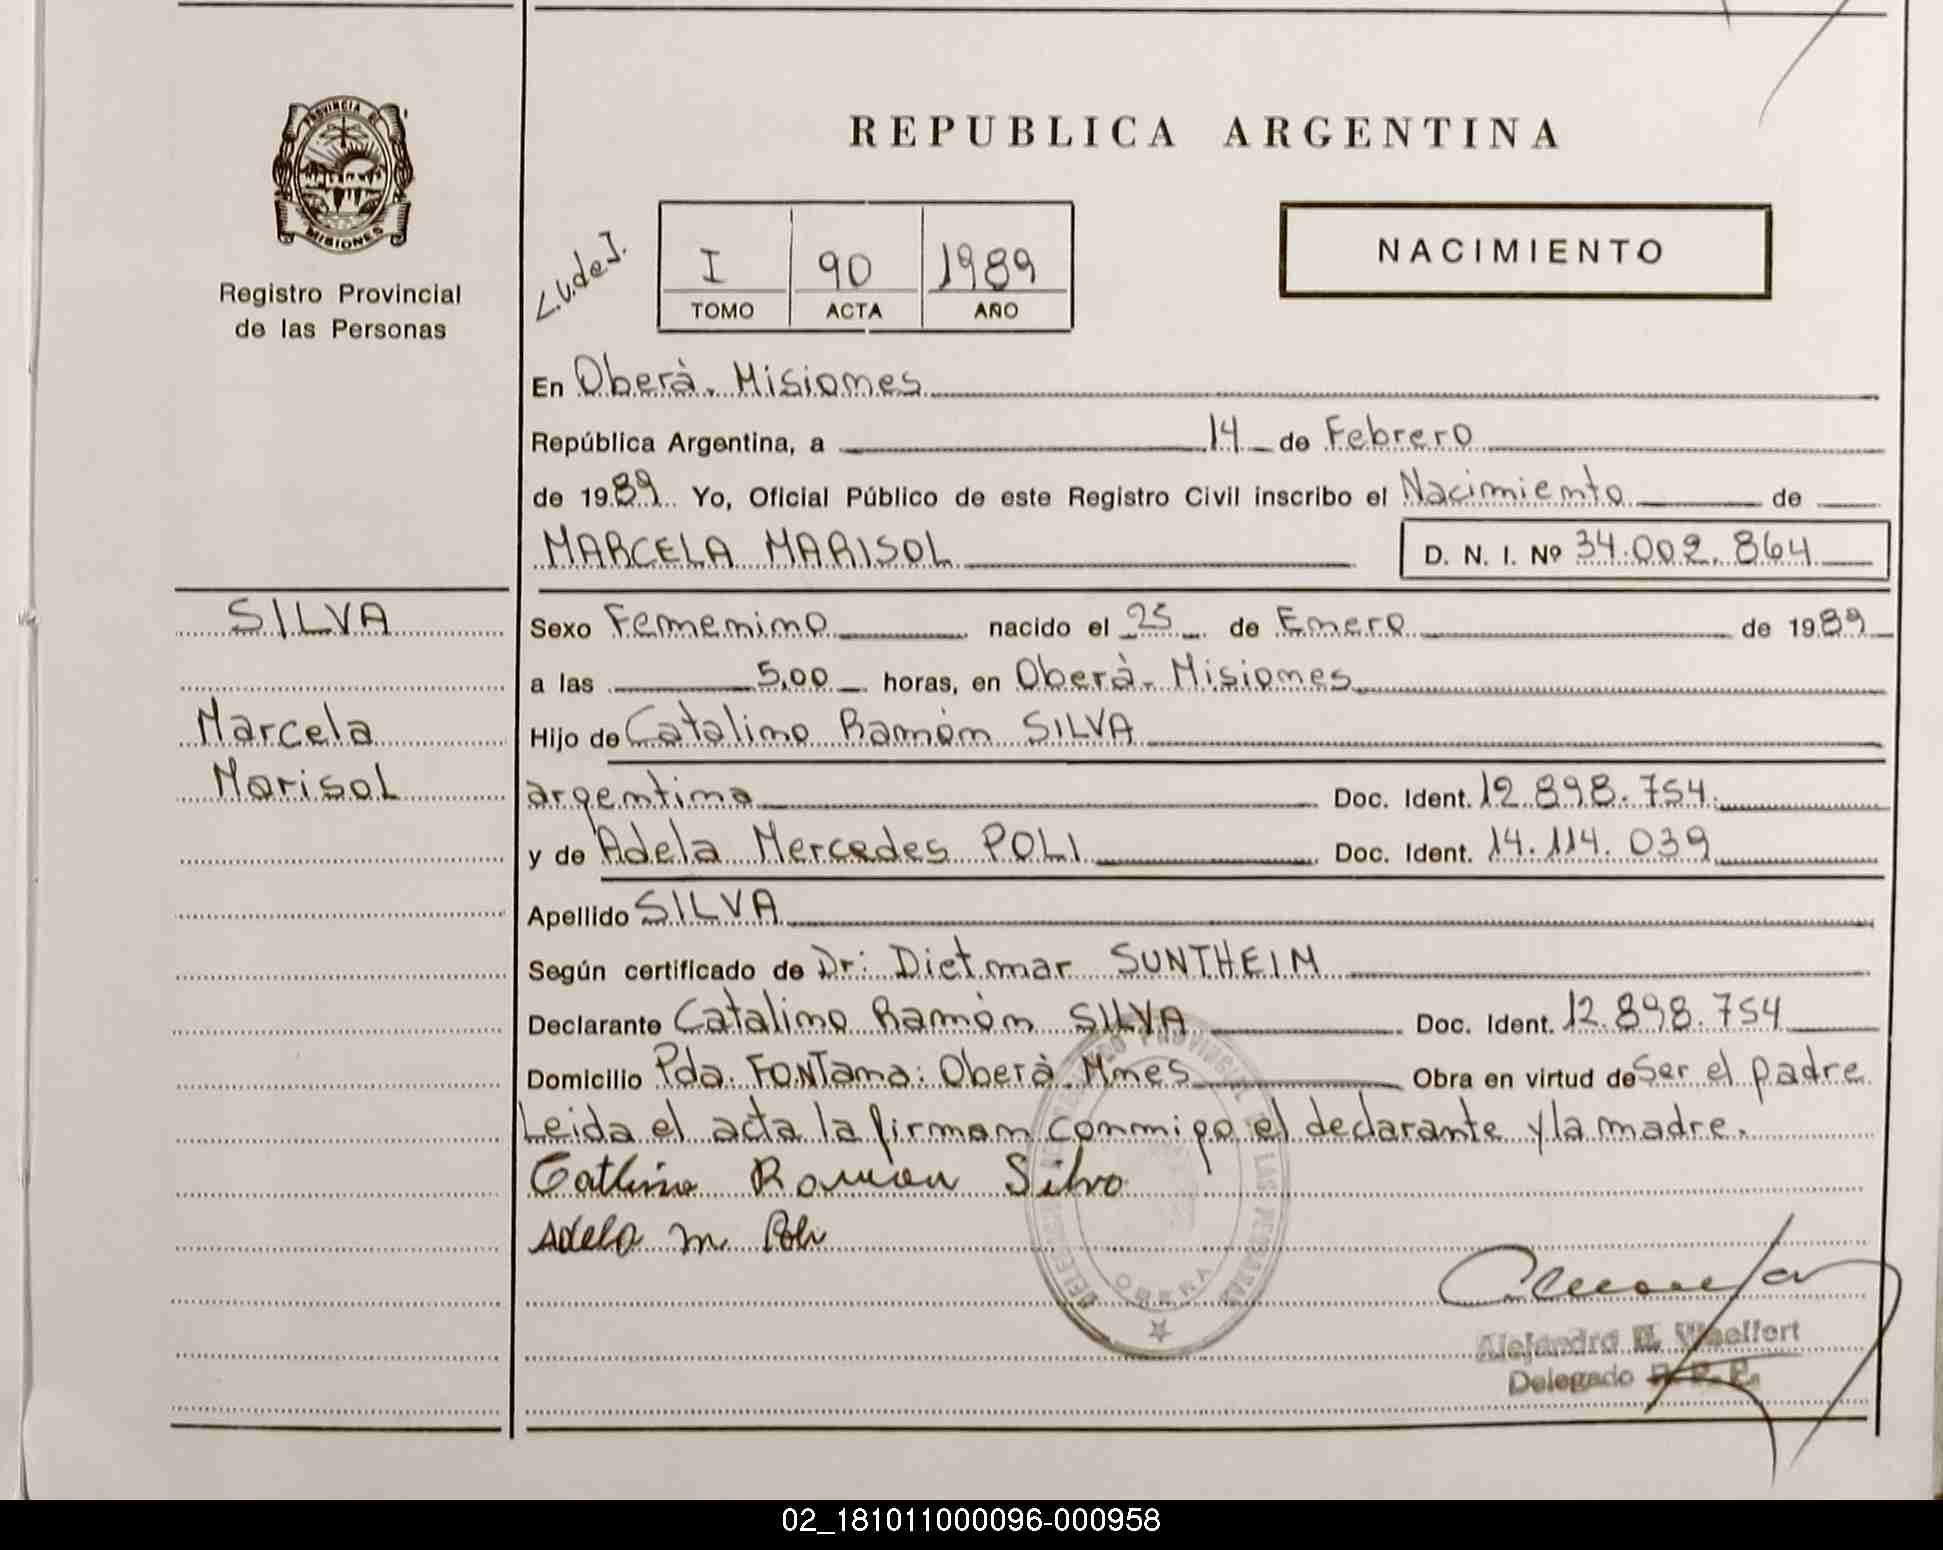 PROVINCIA DE
MISIONES
Registro Provincial
de las Personas
REPUBLICA ARGENTINA
L.U.deJ.
I 90 1989
TOMO ACTA AÑO
NACIMIENTO
En Oberà. Misiones
República Argentina, a 14 de Febrero
de 1989 Yo, Oficial Público de este Registro Civil inscribo el Nacimiento de
MARCELA MARISOL D. N. I. Nº 34.002.864
SILVA
Marcela
Marisol
Sexo Femenino nacido el 25 de Enero de 1989
a las 5,00 horas, en Oberà. Misiones
Hijo de Catalino Ramón SILVA
argentina Doc. Ident. 12.898.754
y de Adela Mercedes POLI Doc. Ident. 14.114.039
Apellido SILVA
Según certificado de Dr: Dietmar SUNTHEIM
Declarante Catalino Ramón SILVA Doc. Ident. 12.898.754
Domicilio Pda. FONTana: Oberà. Mnes Obra en virtud de Ser el padre
Leida el acta la firman conmigo el declarante y la madre.
Catlino Ramon Silva
Adela M Poli
PROVINCIAL DE LAS PERSONAS
OBERA
Alejandro Waelfert
Delegado R. P. P.
02_181011000096-000958